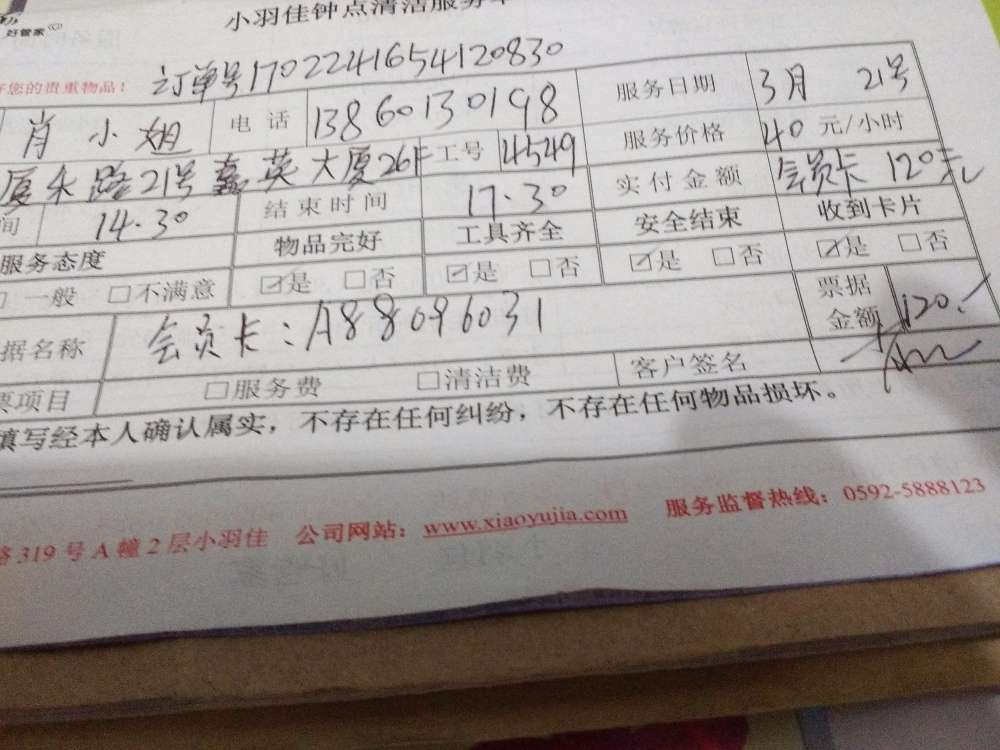 小羽佳钟点清洁服务
好管家
您的贵重物品！ 订单号1702241654120830
肖小姐 电话 13860130198 服务日期 3月 21号
厦禾路21号嘉英大厦26F 工号 4549 服务价格 40元/小时
间 14.30 结束时间 17.30 实付金额 会员卡 120元
服务态度 物品完好 工具齐全 安全结束 收到卡片
□一般 □不满意 ☑是 □否 ☑是 □否 ☑是 □否 ☑是 □否
据名称 会员卡：A88096031 票据金额 120.
票项目 □服务费 □清洁费 客户签名
填写经本人确认属实，不存在任何纠纷，不存在任何物品损坏。
路319号A幢2层小羽佳 公司网站：www.xiaoyujia.com 服务监督热线：0592-5888123